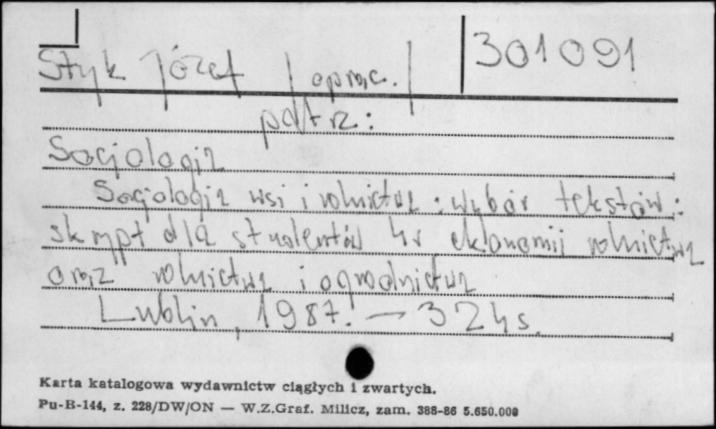 301091
Styk Józef /oprac./
patrz:
Socjologia
Socjologia wsi i rolnictwa : wybór tekstów :
skrypt dla studentów kr ekonomii rolnictwa
oraz rolnictwa i ogrodnictwa
Lublin, 1987. — 324 s.
Karta katalogowa wydawnictw ciągłych i zwartych.
Pu-B-144, z. 228/DW/ON — W.Z.Graf. Milicz, zam. 388-86 5.650.000